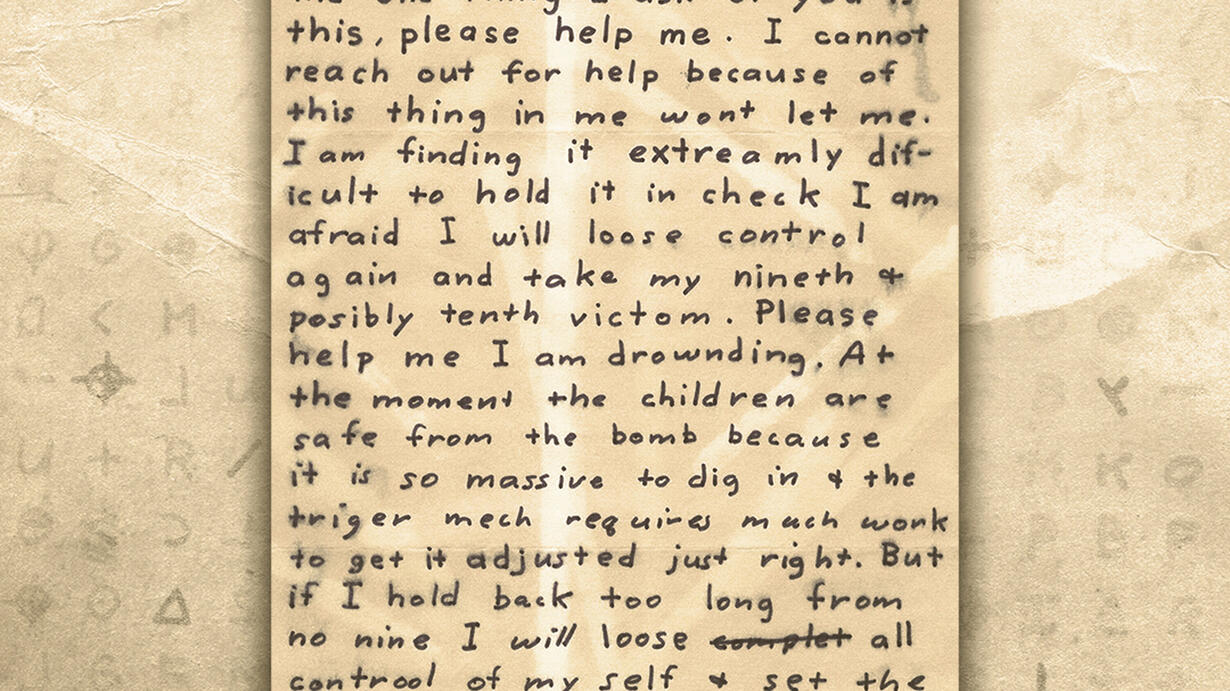 the one thing I ask of you is
this, please help me. I cannot
reach out for help because of
this thing in me wont let me.
I am finding it extreamly dif-
icult to hold it in check I am
afraid I will loose control
again and take my nineth &
posibly tenth victom. Please
help me I am drownding. At
the moment the children are
safe from the bomb because
it is so massive to dig in & the
triger mech requires much work
to get it adjusted just right. But
if I hold back too long from
no nine I will loose complet all
controol of my self & set the